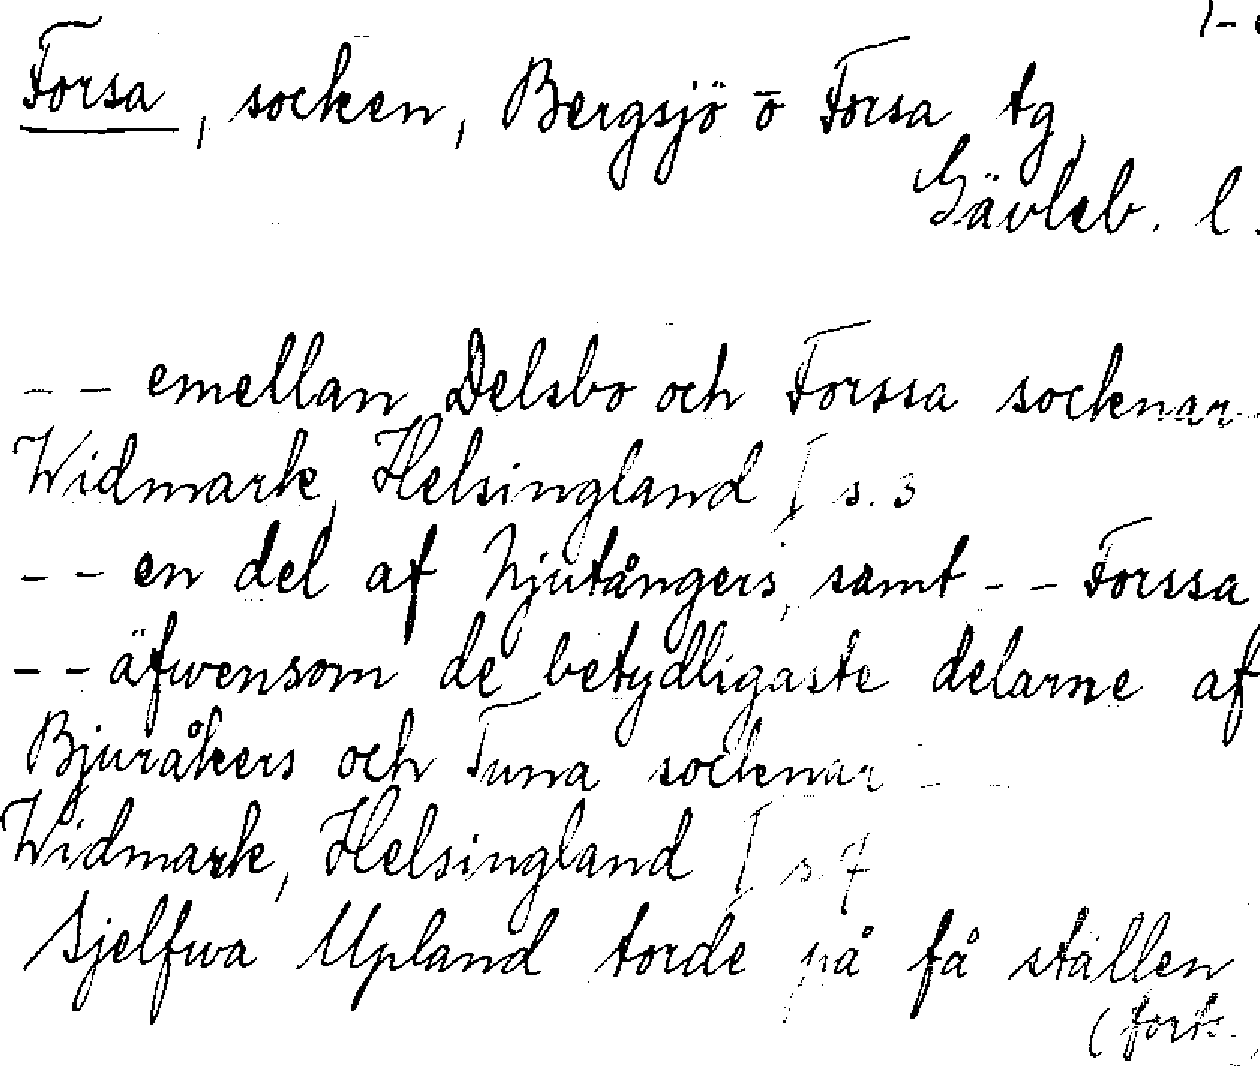 Forsa, socken, Bergsjö o Forsa tg,
Gävleb. l.
-- emellan Delsbo och Forssa socknar-
Widmark, Helsingland I s. 3
-- en del af Njutångers, samt -- Forssa
-- äfwensom de betydligaste delarne af
Bjuråkers och Tuna socknar --
Widmark, Helsingland I s. 7
Sjelfwa Upland torde på få ställen
(forts.)